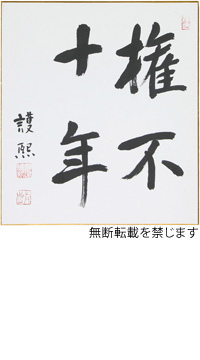 権不
十年
護熙
無断転載を禁じます